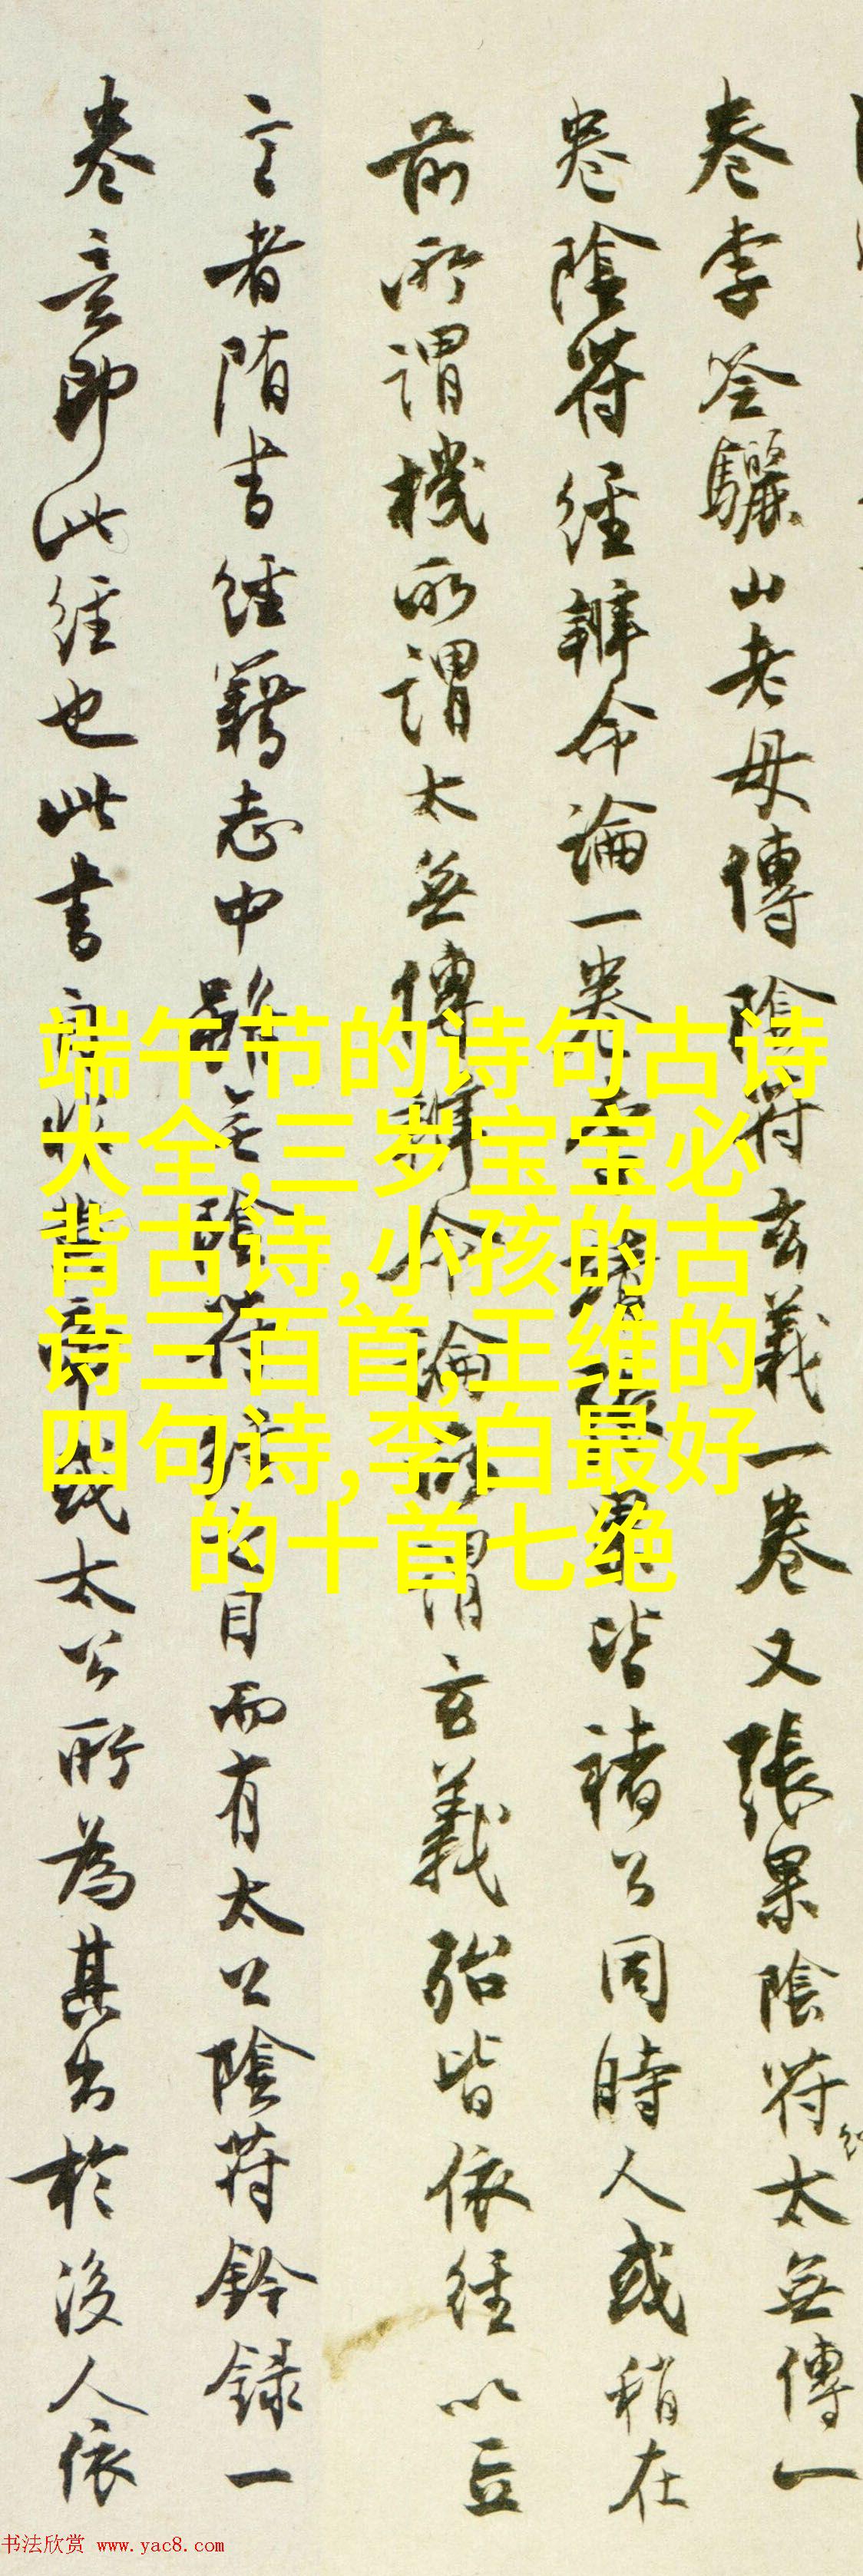 卷李筌驪山老母傳陰符玄義一卷又張果陰符太無傳一
卷陰符經辨命論一卷
皆褚公同時人或稍在
前所謂機所謂太無傳辨命論所謂玄義殆皆依經以立
言者隋書經籍志中
陰符
目而有太公陰符鈐録一
卷意即此經也此書
或太公所為其出於後人依
端午节的诗句古诗
大全,三岁宝宝必
背古诗,小孩的古
诗三百首,王维的
四句诗,李白最好
的十首七绝
书法欣赏 www.yac8.com